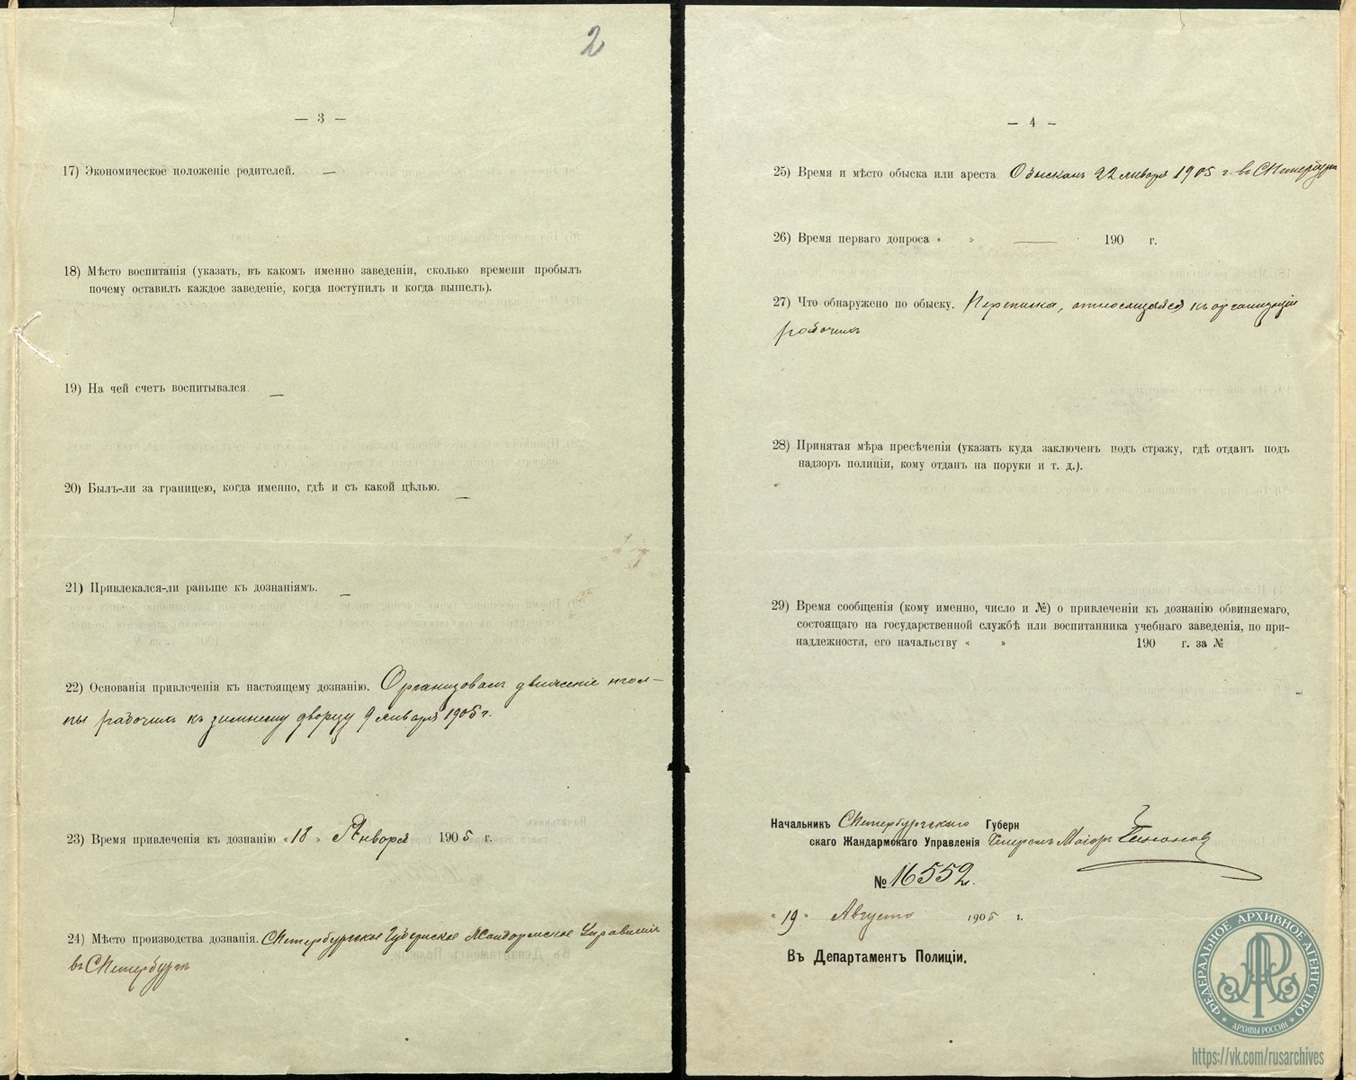 2
— 3 —
17) Экономическое положеніе родителей. —
18) Мѣсто воспитанія (указать, въ какомъ именно заведеніи, сколько времени пробылъ
почему оставилъ каждое заведеніе, когда поступилъ и когда вышелъ).
19) На чей счетъ воспитывался. —
20) Былъ-ли за границею, когда именно, гдѣ и съ какой цѣлью. —
21) Привлекался-ли раньше къ дознаніямъ. —
22) Основанія привлеченія къ настоящему дознанію. Организовалъ движеніе тол-
пы рабочихъ къ зимнему дворцу 9 января 1905 г.
23) Время привлеченія къ дознанію «18» Января 1905 г.
24) Мѣсто производства дознанія. СПетербургское Губернское Жандармское Управленіе
въ СПетербургѣ
— 4 —
25) Время и мѣсто обыска или ареста Обысканъ 22 января 1905 г. въ СПетербургѣ
26) Время перваго допроса « » — 190 г.
27) Что обнаружено по обыску. Переписка, относящаяся къ организаціи
рабочихъ
28) Принятая мѣра пресѣченія (указать куда заключенъ подъ стражу, гдѣ отданъ подъ
надзоръ полиціи, кому отданъ на поруки и т. д.).
29) Время сообщенія (кому именно, число и №) о привлеченіи къ дознанію обвиняемаго,
состоящаго на государственной службѣ или воспитанника учебнаго заведенія, по при-
надлежности, его начальству « » 190 г. за №
Начальникъ СПетербургскаго Губерн
скаго Жандармскаго Управленія Генералъ Маіоръ
№ 16552.
«19» Августа 1905 г.
Въ Департаментъ Полиціи.
ФЕДЕРАЛЬНОЕ АРХИВНОЕ АГЕНТСТВО
АРХИВЫ РОССИИ
https://vk.com/rusarchives